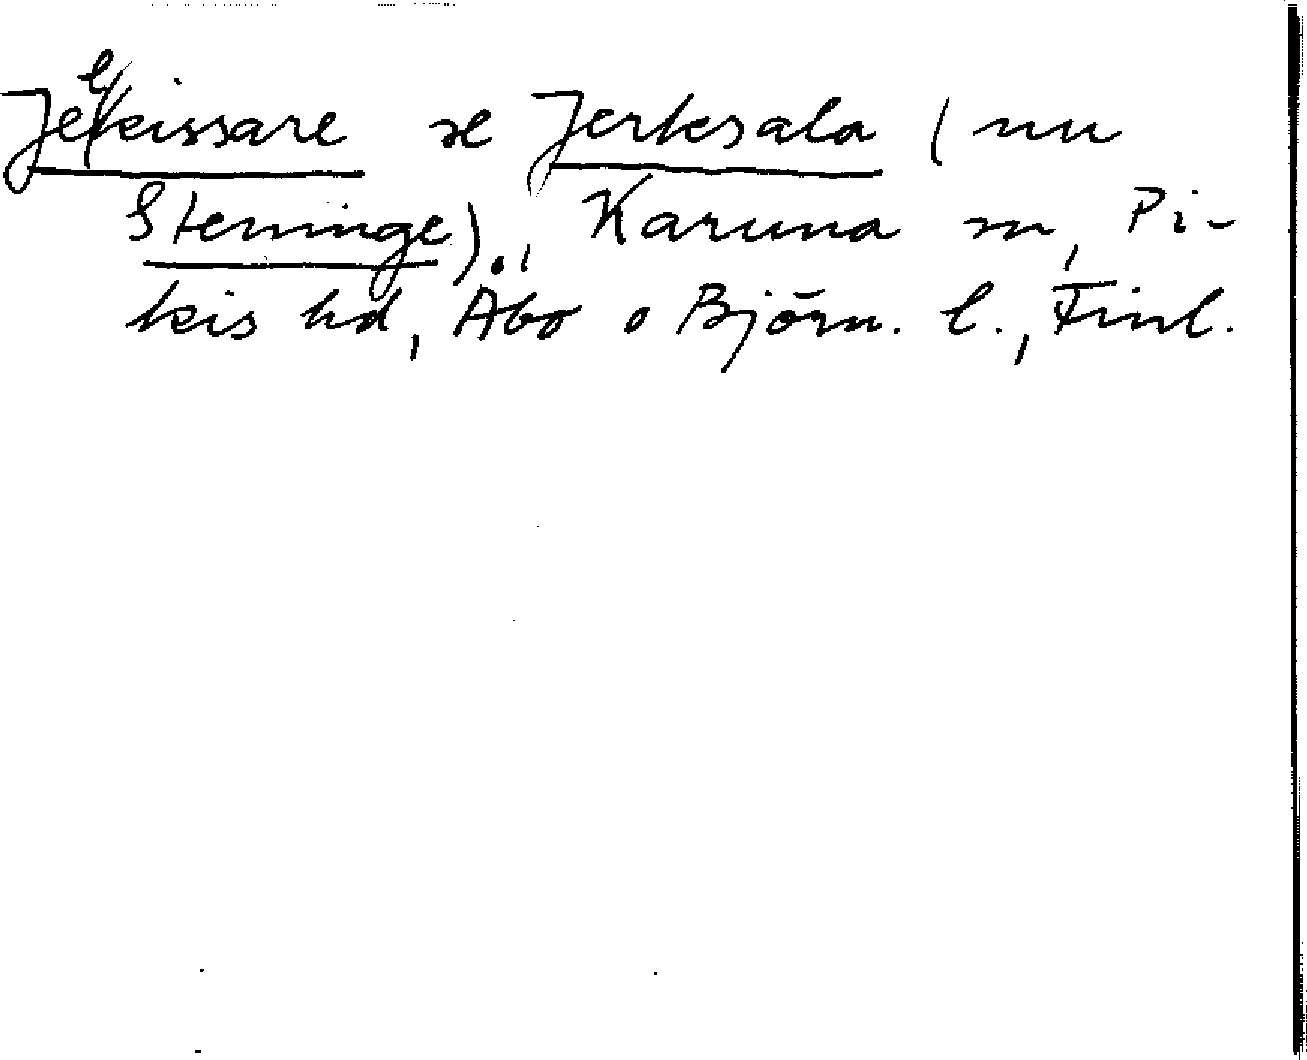 Jelkissare se Jerkesala (nu
Steninge)., Karuna sn, Pi-
kis hd, Åbo o Björn. l., Finl.